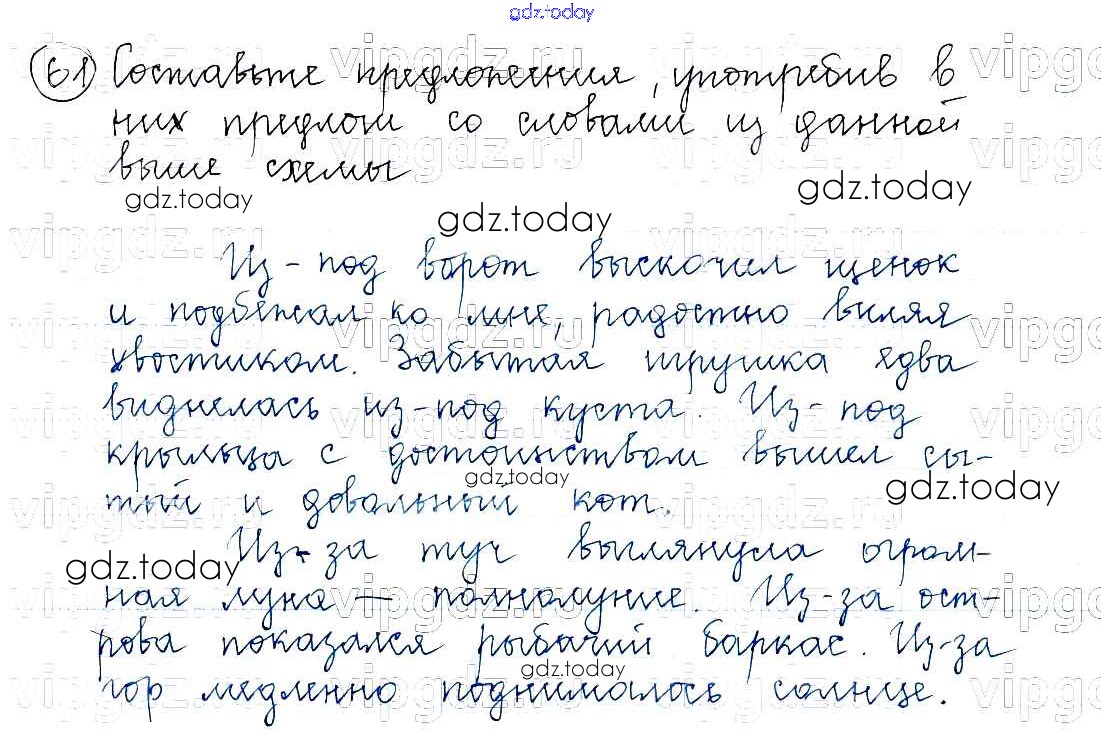 gdz.today
61 Составьте предложения, употребив в
них предлог со словами из данной
выше схемы
gdz.today
gdz.today
gdz.today
Из-под ворот выскочил щенок
и подбежал ко мне, радостно виляя
хвостиком. Забытая игрушка едва
виднелась из-под куста. Из-под
крыльца с достоинством вышел сы-
тый и довольный кот.
gdz.today
gdz.today
Из-за туч выглянула огром-
gdz.today
ная луна — полнолуние. Из-за ост-
рова показался рыбачий баркас. Из-за
gdz.today
гор медленно поднималось солнце.
vipgdz.ru